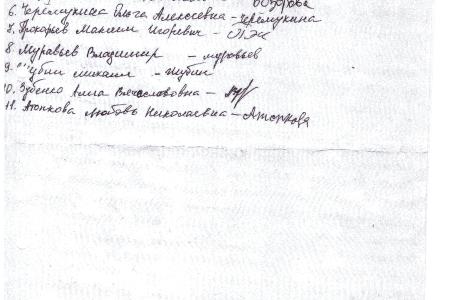 6. Черемухина Ольга Алексеевна - Черемухина
7. Прокофьев Максим Игоревич -
8. Муравьев Владимир - муравьев
9. Шубин михаил - шубин
10. Зубенко Алла Вячеславовна -
11. Любовь Николаевна -